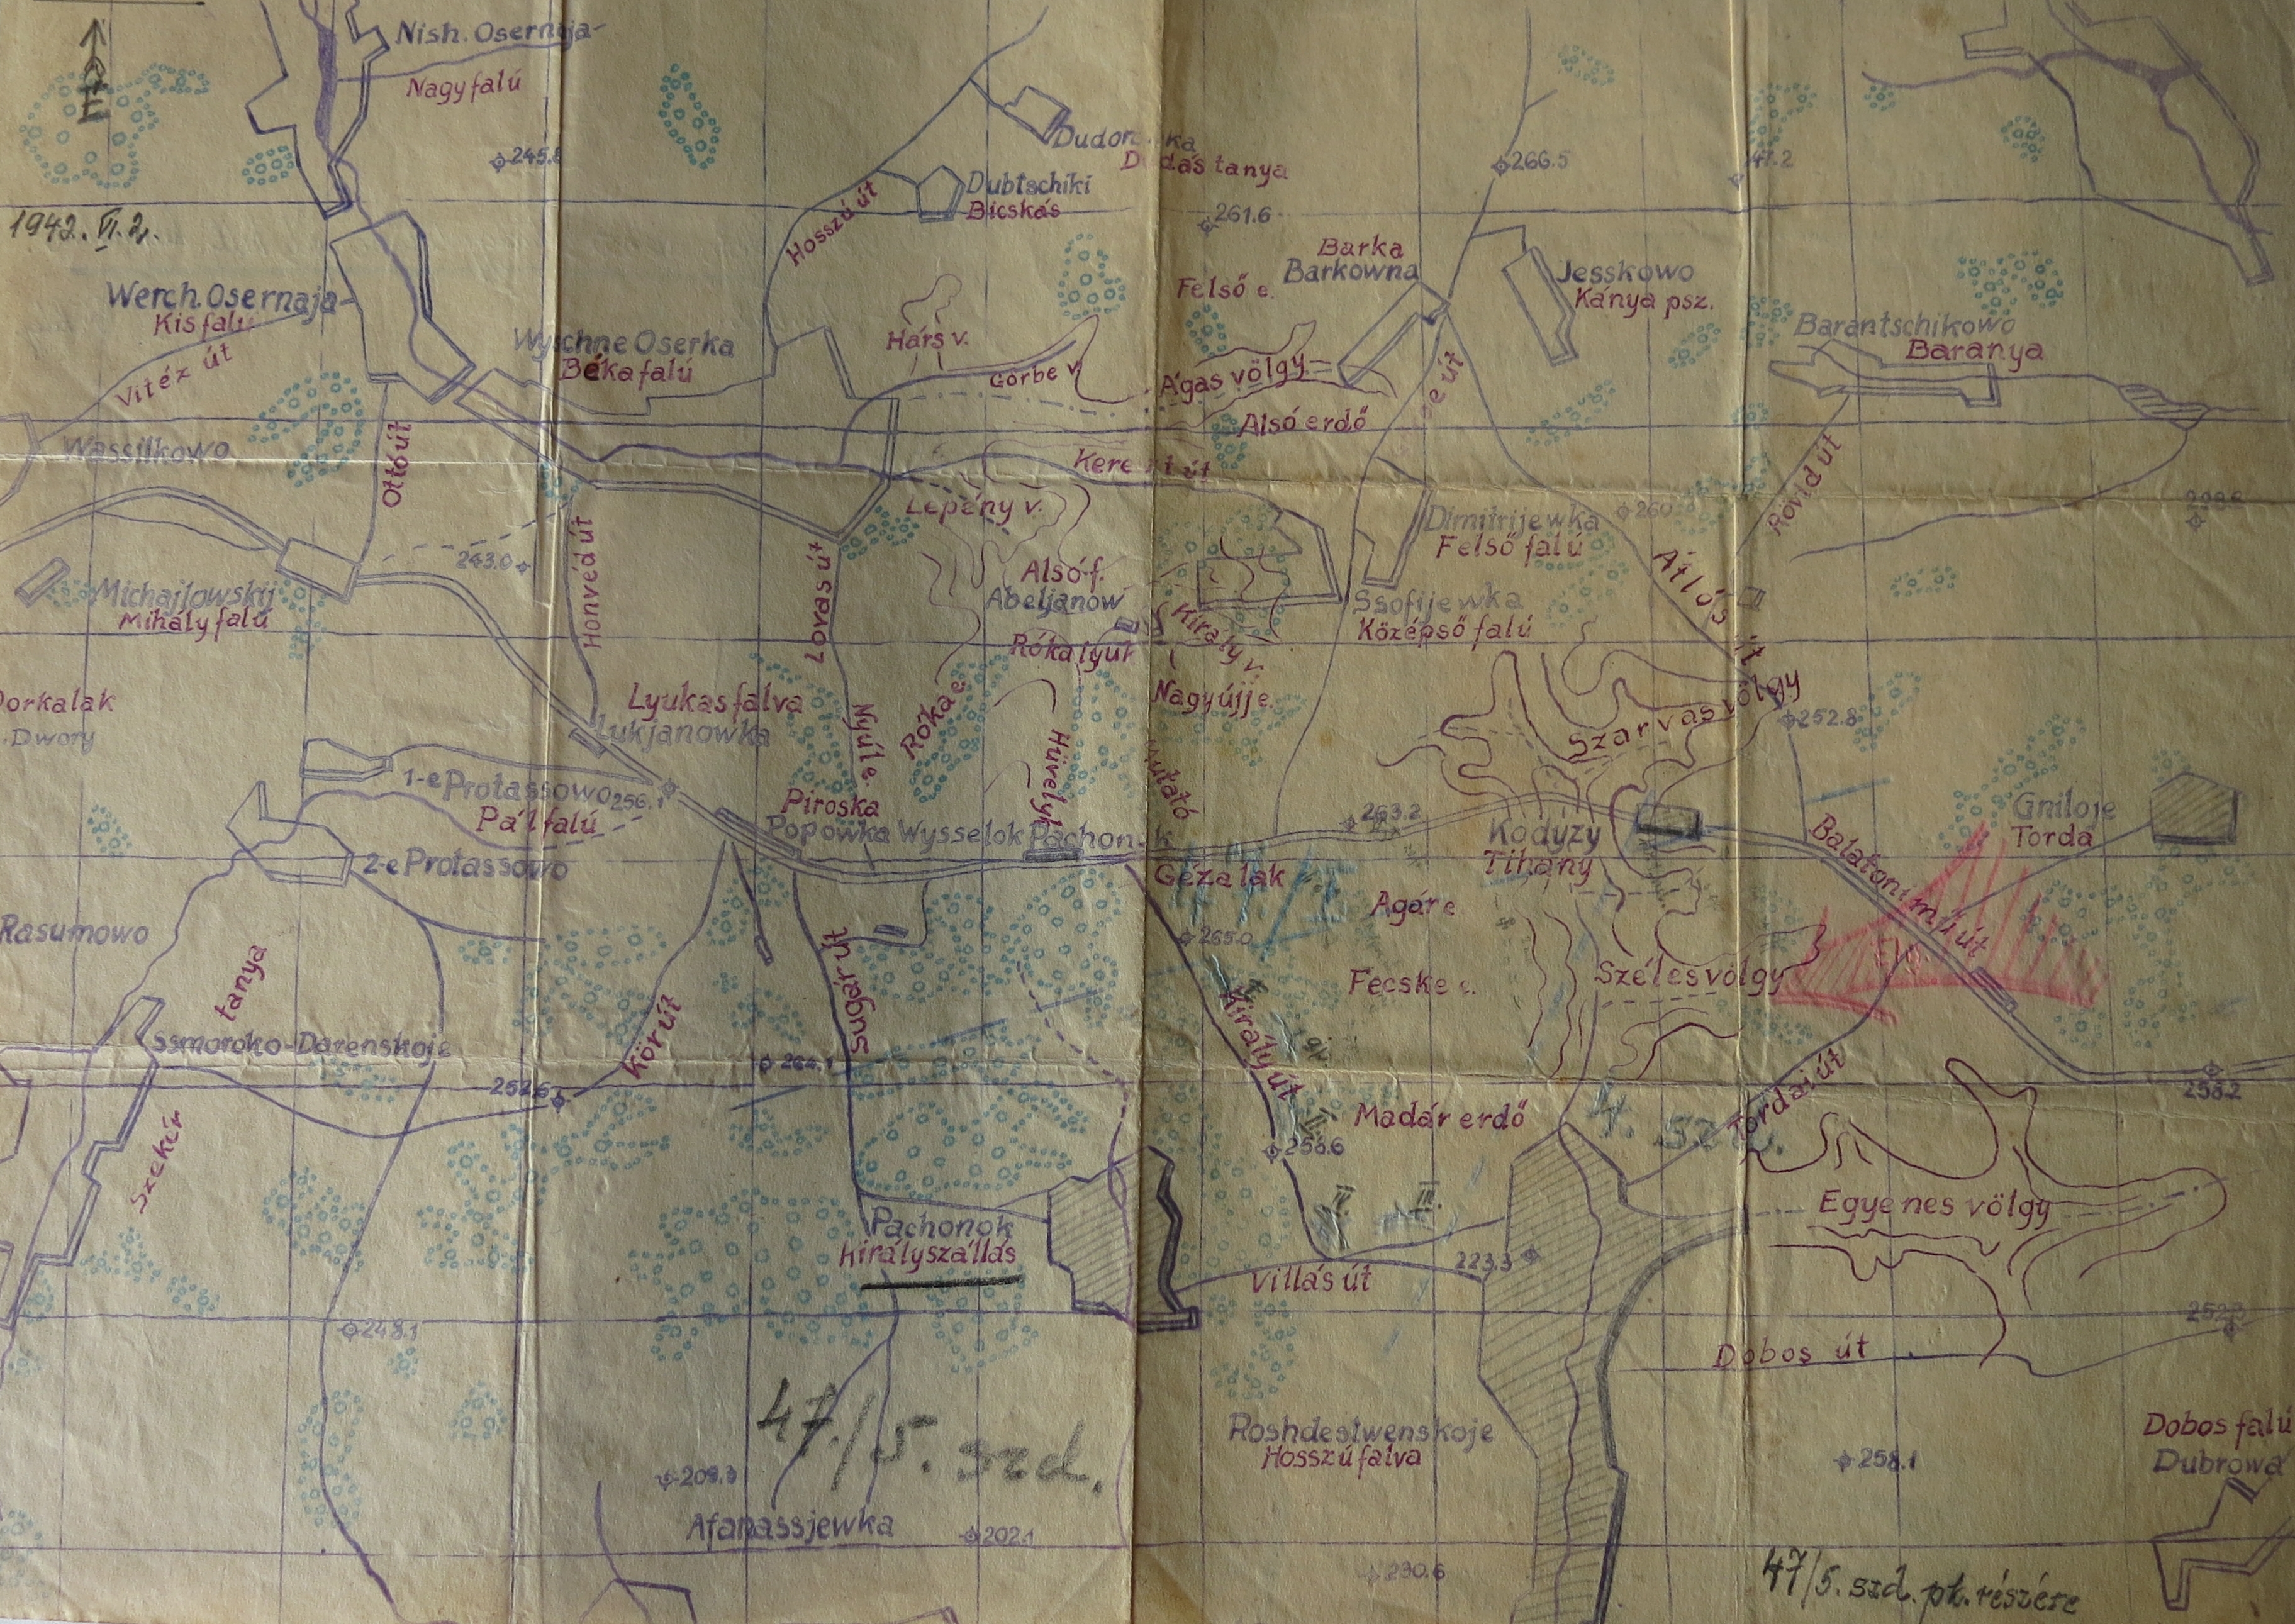 É
1942. VI. 2.
Nish. Osernaja
Nagyfalú
245.8
Werch. Osernaja
Kisfalú
Vitéz út
Wassilkowo
Ottó út
Wyschne Oserka
Békafalú
Hosszú út
Dubtschiki
Bicskás
Dudás tanya
Hárs v.
Görbe v.
261.6
266.5
47.2
Felső e.
Barka
Barkowna
Jesskowo
Kánya psz.
Barantschikowo
Baranya
Ágas völgy
Alsó erdő
út
Rövid út
Lepény v.
243.0
Michajlowskij
Mihályfalú
Honvéd út
Lovas út
Alsó f.
Abeljanow
Rókalyuk
Király v.
Nagyújj e.
Dimitrijewka
Felső falú
260
Ssofijewka
Középső falú
Átlós út
Szarvas völgy
252.8
Dorkalak
Dwory
Lyukasfalva
Lukjanowka
Nyúl e.
Róka e.
Hüvelyk
Mutató
1-e Protassowo
256.1
Pálfalú
2-e Protassowo
Piroska
Popowka
Wysselok Pachonok
Gézalak
263.2
Kodyzy
Tihány
Gniloje
Torda
Balatoni műút
Agár e.
265.0
Fecske e.
Széles völgy
Rasumowo
Szekér tanya
Ssmoroko-Darenskoje
252.6
Körút
264.1
Sugár út
Király út
256.6
Madár erdő
4. szd.
Tordai út
258.2
Egyenes völgy
Pachonok
Királyszállás
IV.
III.
223.3
Villás út
252.3
Dobos út
248.1
47./5. szd.
209.3
Afanassjewka
202.1
Roshdestwenskoje
Hosszúfalva
230.6
258.1
Dobos falú
Dubrowa
47/5. szd. pk. részére